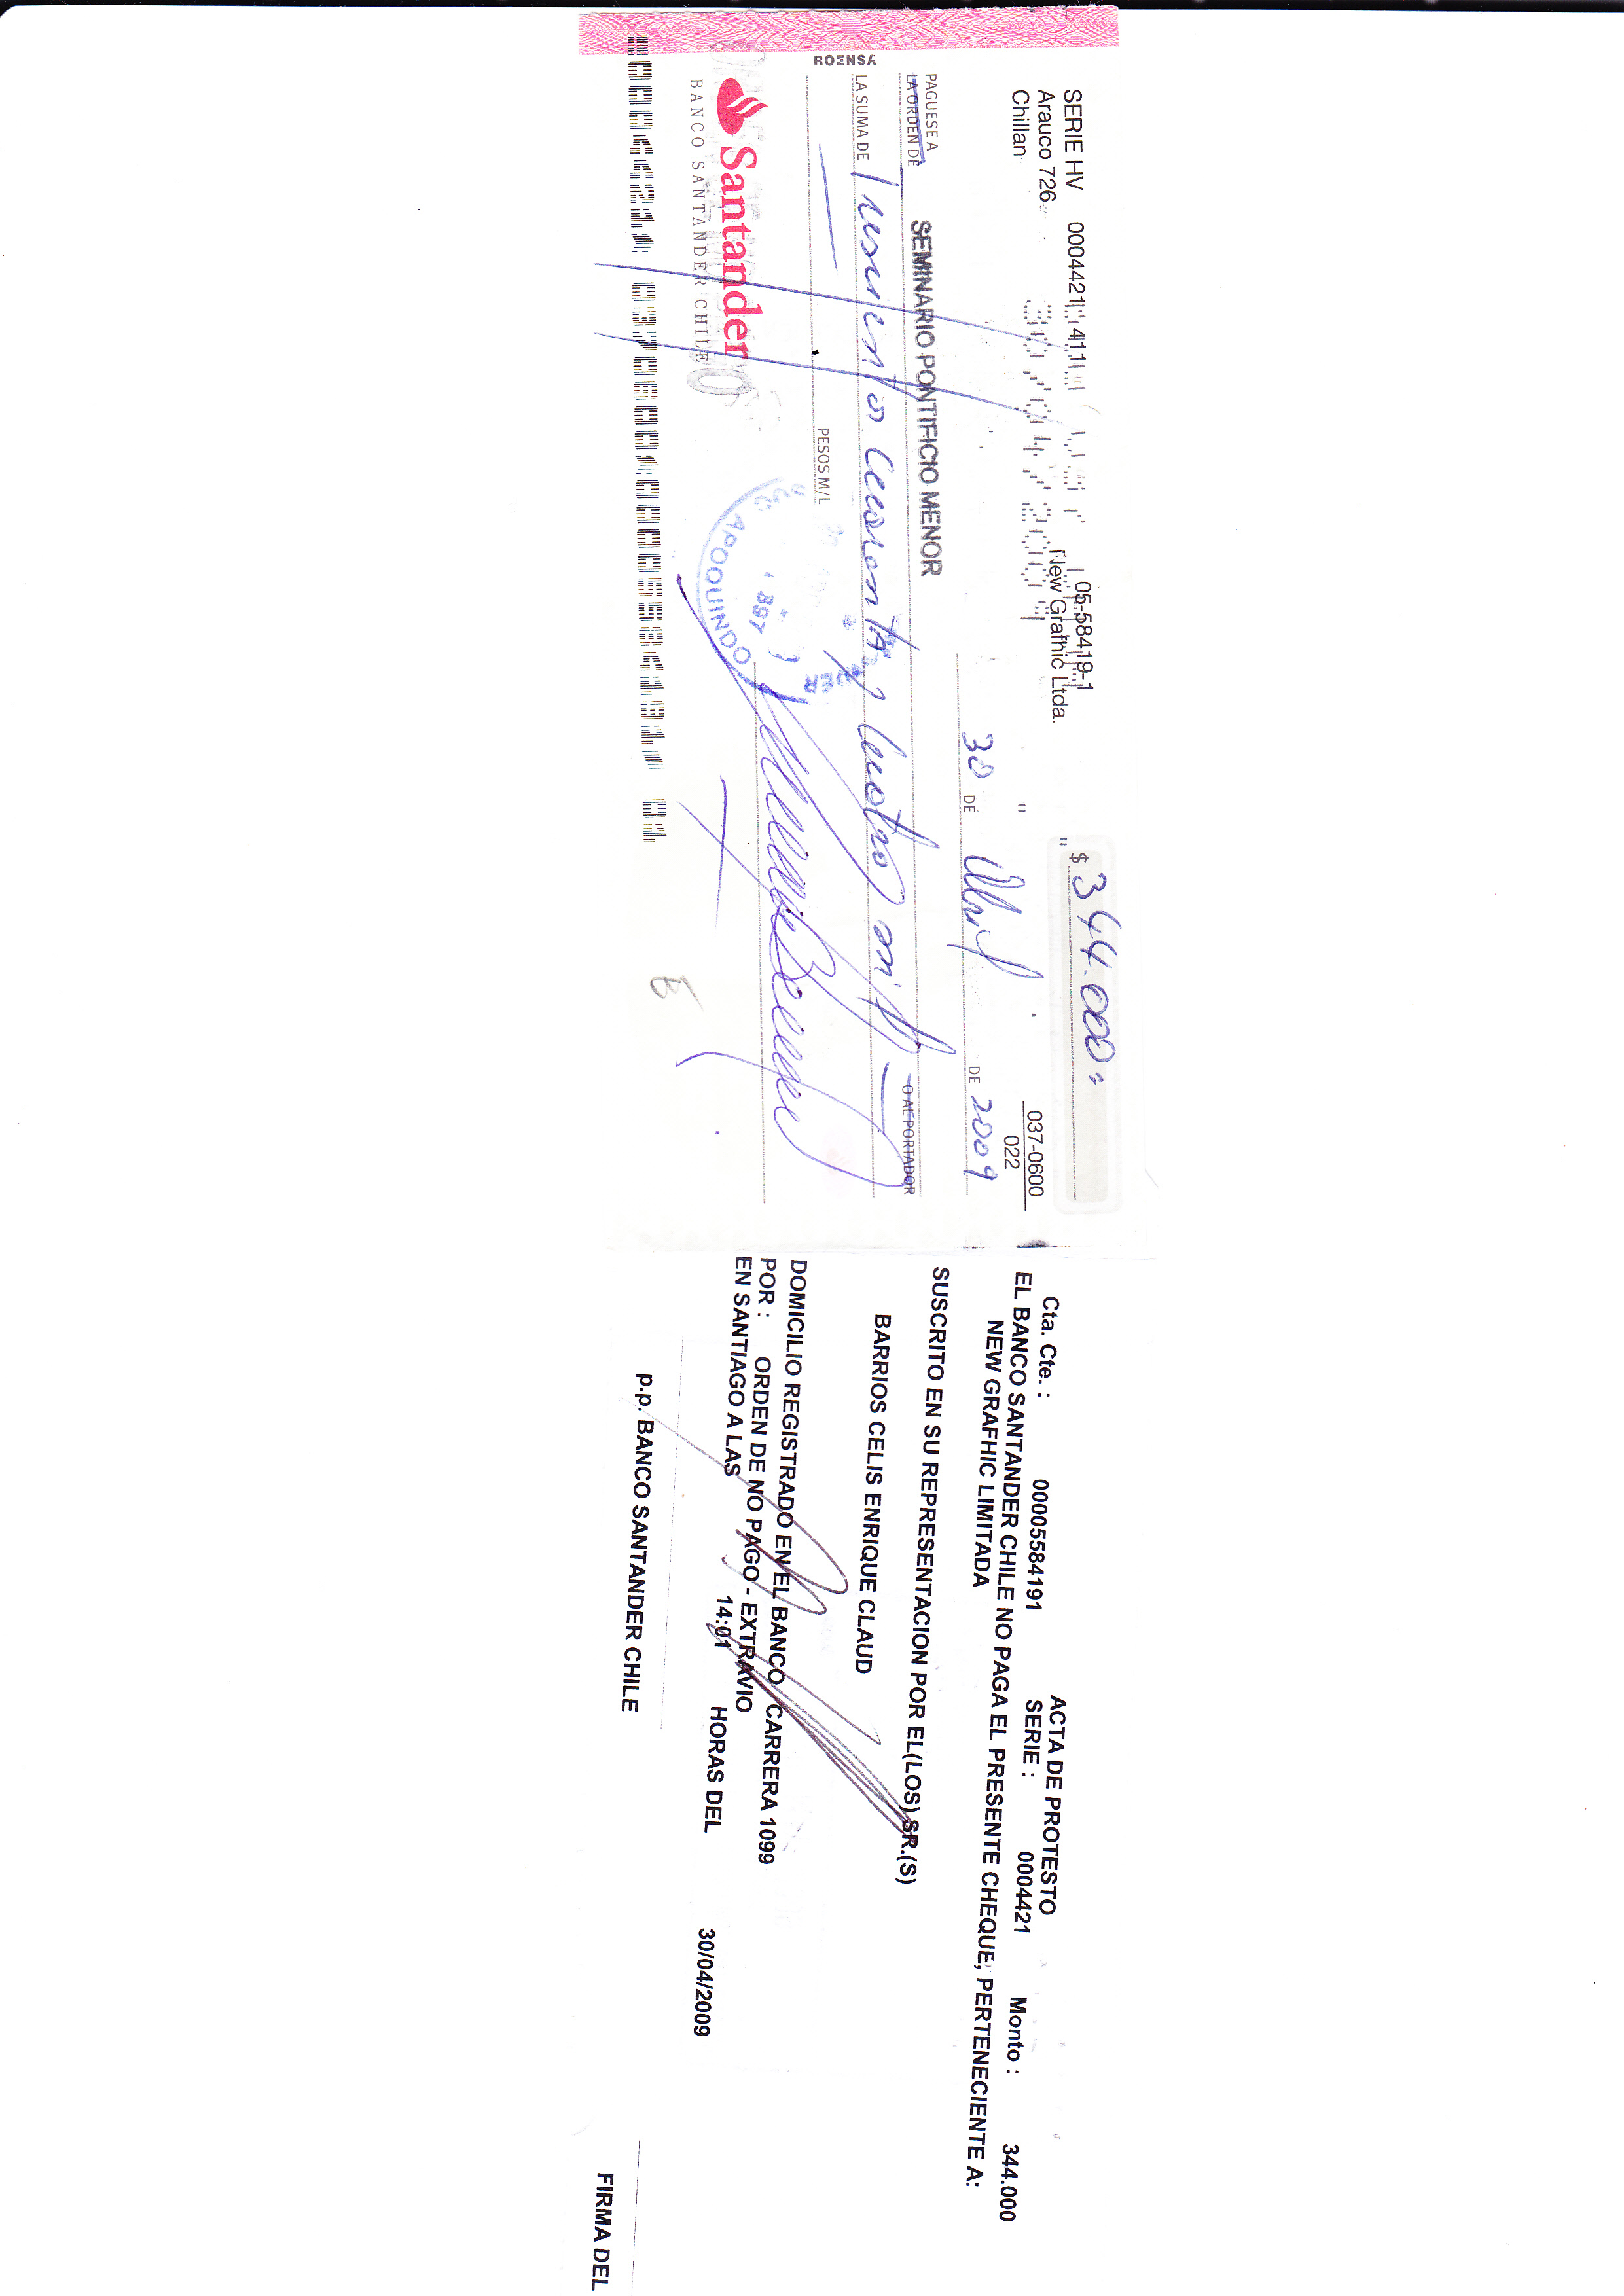 SERIE HV 0004421 411
Arauco 726
Chillan
05-58419-1
New Grafhic Ltda.
$ 344.000=
037-0600
022
30 DE Abril DE 2009
PAGUESE A
LA ORDEN DE
SEMINARIO PONTIFICIO MENOR
O AL PORTADOR
LA SUMA DE Trescientos cuarenta y cuatro mil
PESOS M/L
ROENSA
Santander
BANCO SANTANDER CHILE
APOQUINDO
ACTA DE PROTESTO
Cta. Cte. : 00005584191 SERIE : 0004421 Monto : 344.000
EL BANCO SANTANDER CHILE NO PAGA EL PRESENTE CHEQUE, PERTENECIENTE A:
NEW GRAFHIC LIMITADA
SUSCRITO EN SU REPRESENTACION POR EL(LOS) SR.(S)
BARRIOS CELIS ENRIQUE CLAUD
DOMICILIO REGISTRADO EN EL BANCO CARRERA 1099
POR : ORDEN DE NO PAGO - EXTRAVIO
EN SANTIAGO A LAS 14:01 HORAS DEL 30/04/2009
p.p. BANCO SANTANDER CHILE
FIRMA DEL